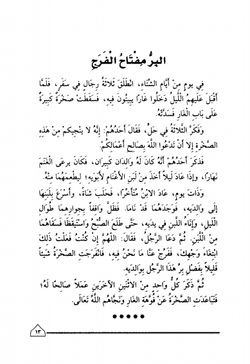 البِرُّ مِفْتَاحُ الْفَرَجِ
فِي يومٍ مِنْ أَيَّامِ الشِّتَاءِ، انْطَلَقَ ثَلَاثَةُ رِجَالٍ فِي سَفَرٍ، فَلَمَّا
أَقْبَلَ عَلَيهِمُ اللَّيلُ دَخَلُوا غَارًا يَبِيتُونَ فِيهِ، فَسَقَطَتْ صَخْرَةٌ كَبِيرَةٌ
عَلَى بَابِ الْغَارِ فَسَدَّتْهُ.
وَفَكَّرَ الثَّلَاثَةُ فِي حَلٍّ، فَقَالَ أَحَدُهُمْ: إِنَّهُ لَا يُنْجِيكُمْ مِنْ هَذِهِ
الصَّخْرَةِ إِلَّا أَنْ تَدْعُوا اللَّهَ بِصَالِحِ أَعْمَالِكُمْ.
فَذَكَرَ أَحَدُهُمْ أَنَّهُ كَانَ لَهُ وَالِدَانِ كَبِيرَانِ، فَكَانَ يَرعَى الْغَنَمَ
نَهَارًا، وَإِذَا عَادَ لَيلًا أَخَذَ مِنْ لَبَنِ الأَغْنَامِ لأَبَوَيهِ؛ لِيُطْعِمَهُمَا مِنْهُ.
وَذَاتَ يومٍ، عَادَ الابْنُ مُتَأَخِّرًا، فَحَلَبَ شَاةً، وَأَسْرَعَ بِلَبَنِهَا
إِلَى وَالِدَيهِ، فَوَجَدَهُمَا قَدْ نَامَا، فَظَلَّ وَاقِفًا بِجِوارِهِمَا طُوالَ
اللَّيلِ، وَإِنَاءُ اللَّبَنِ فِي يَدِهِ، حَتَّى طَلَعَ الصُّبْحُ وَاسْتَيقَظَا فَسَقَاهُمَا
مِنَ اللَّبَنِ. ثُمَّ دَعَا الرَّجُلُ، فَقَالَ: اللَّهُمَّ إِنْ كُنْتُ فَعَلْتُ ذَلِكَ
ابْتِغَاءَ وَجْهِكَ، فَفَرِّجْ عَنَّا مَا نَحْنُ فِيهِ. فَانْفَرَجَتِ الصَّخْرَةُ شَيئًا
قَلِيلًا بِفَضْلِ بِرِّ هَذَا الرَّجُلِ بِوَالِدَيهِ.
ثُمَّ ذَكَرَ كُلُّ وَاحِدٍ مِنَ الاثْنَينِ الآخَرَينِ عَمَلًا صَالِحًا لَهُ؛
فَتَبَاعَدَتِ الصَّخْرَةُ عَنْ فُوَّهَةِ الغَارِ وَنَجَّاهُمُ اللَّهُ تَعَالَى.
١٣